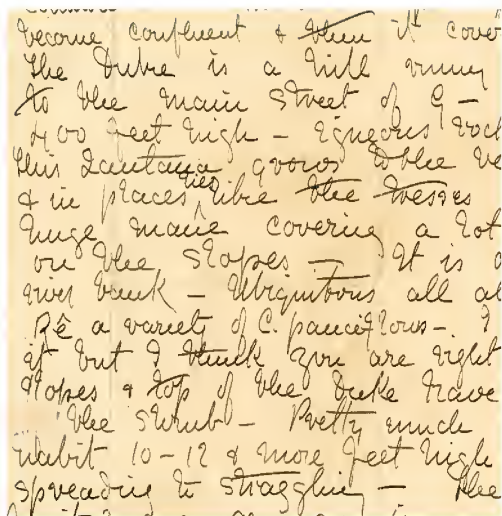 become confluent & then it cover
The Duke is a hill runny
to the main street of G —
400 feet high — igneous rock
this Lantana grows to the ve
& in places lies like the tresses
huge mane covering a lot
on the slopes — It is a
river bank — Ubiquitous all al
Re a variety of C. pauciflorus — I
it but I think you are right
slopes & top of the Duke have
the shrub — Pretty much
habit 10-12 & more feet high
spreading to straggling — the